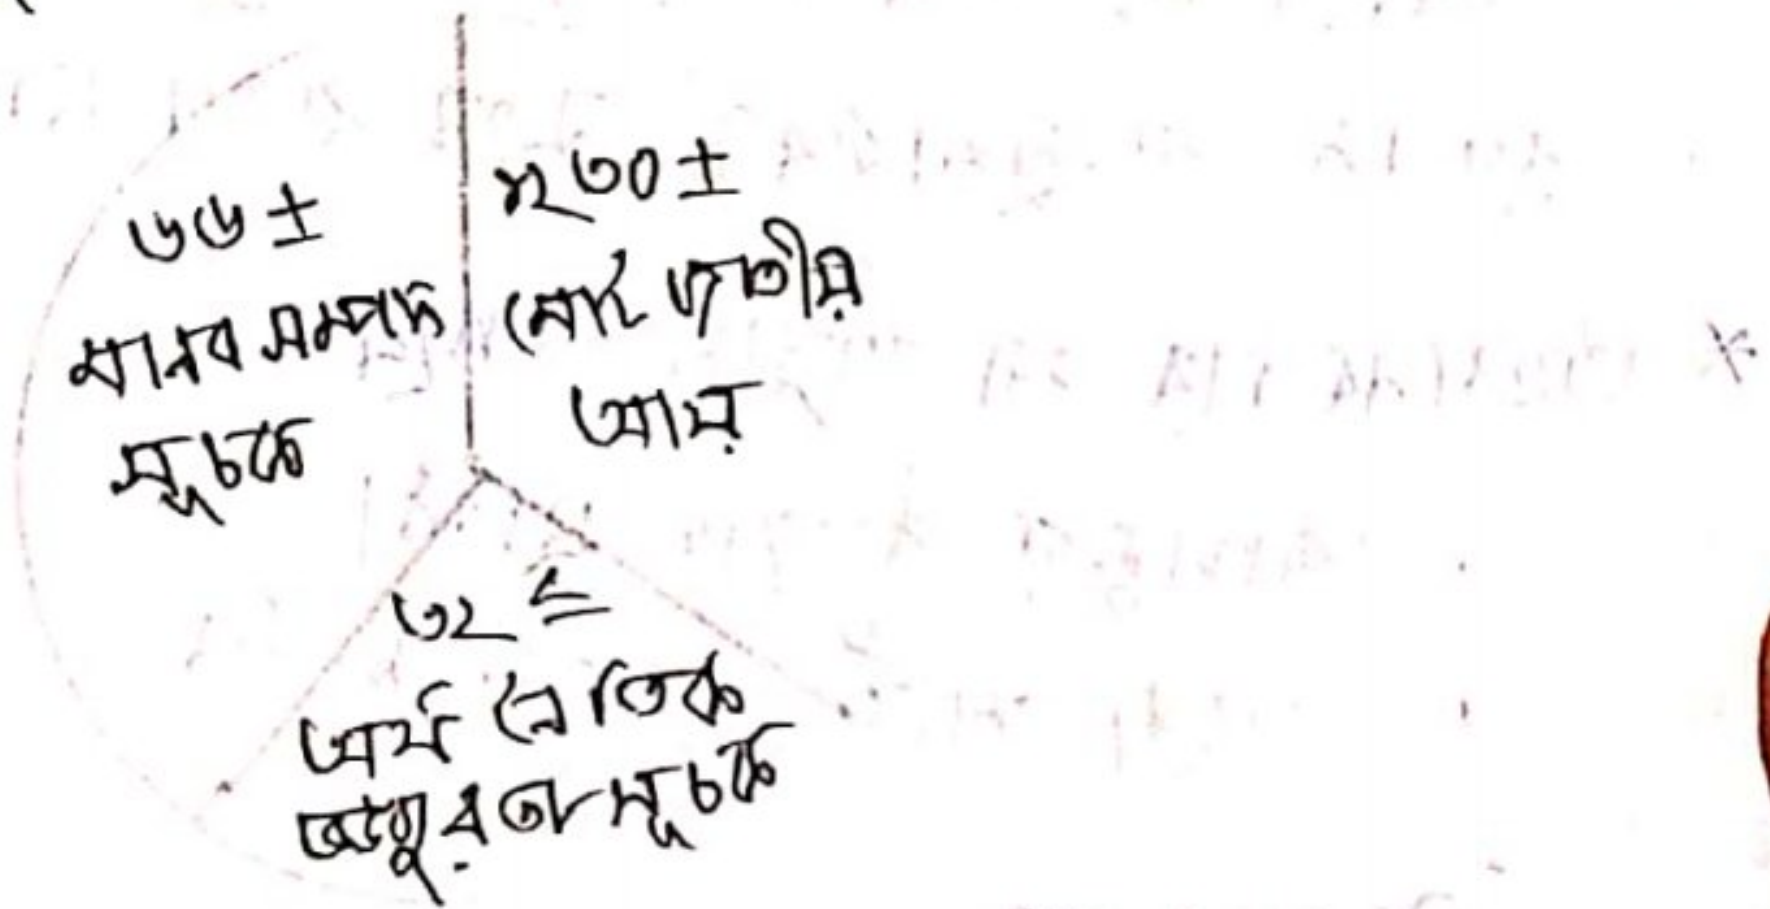 ৬৬ ±
মানব সম্পদ
সূচকে
২৩০ ±
মোট জাতীয়
আয়
৩২ ≤
অর্থনৈতিক
ভঙ্গুরতা সূচকে